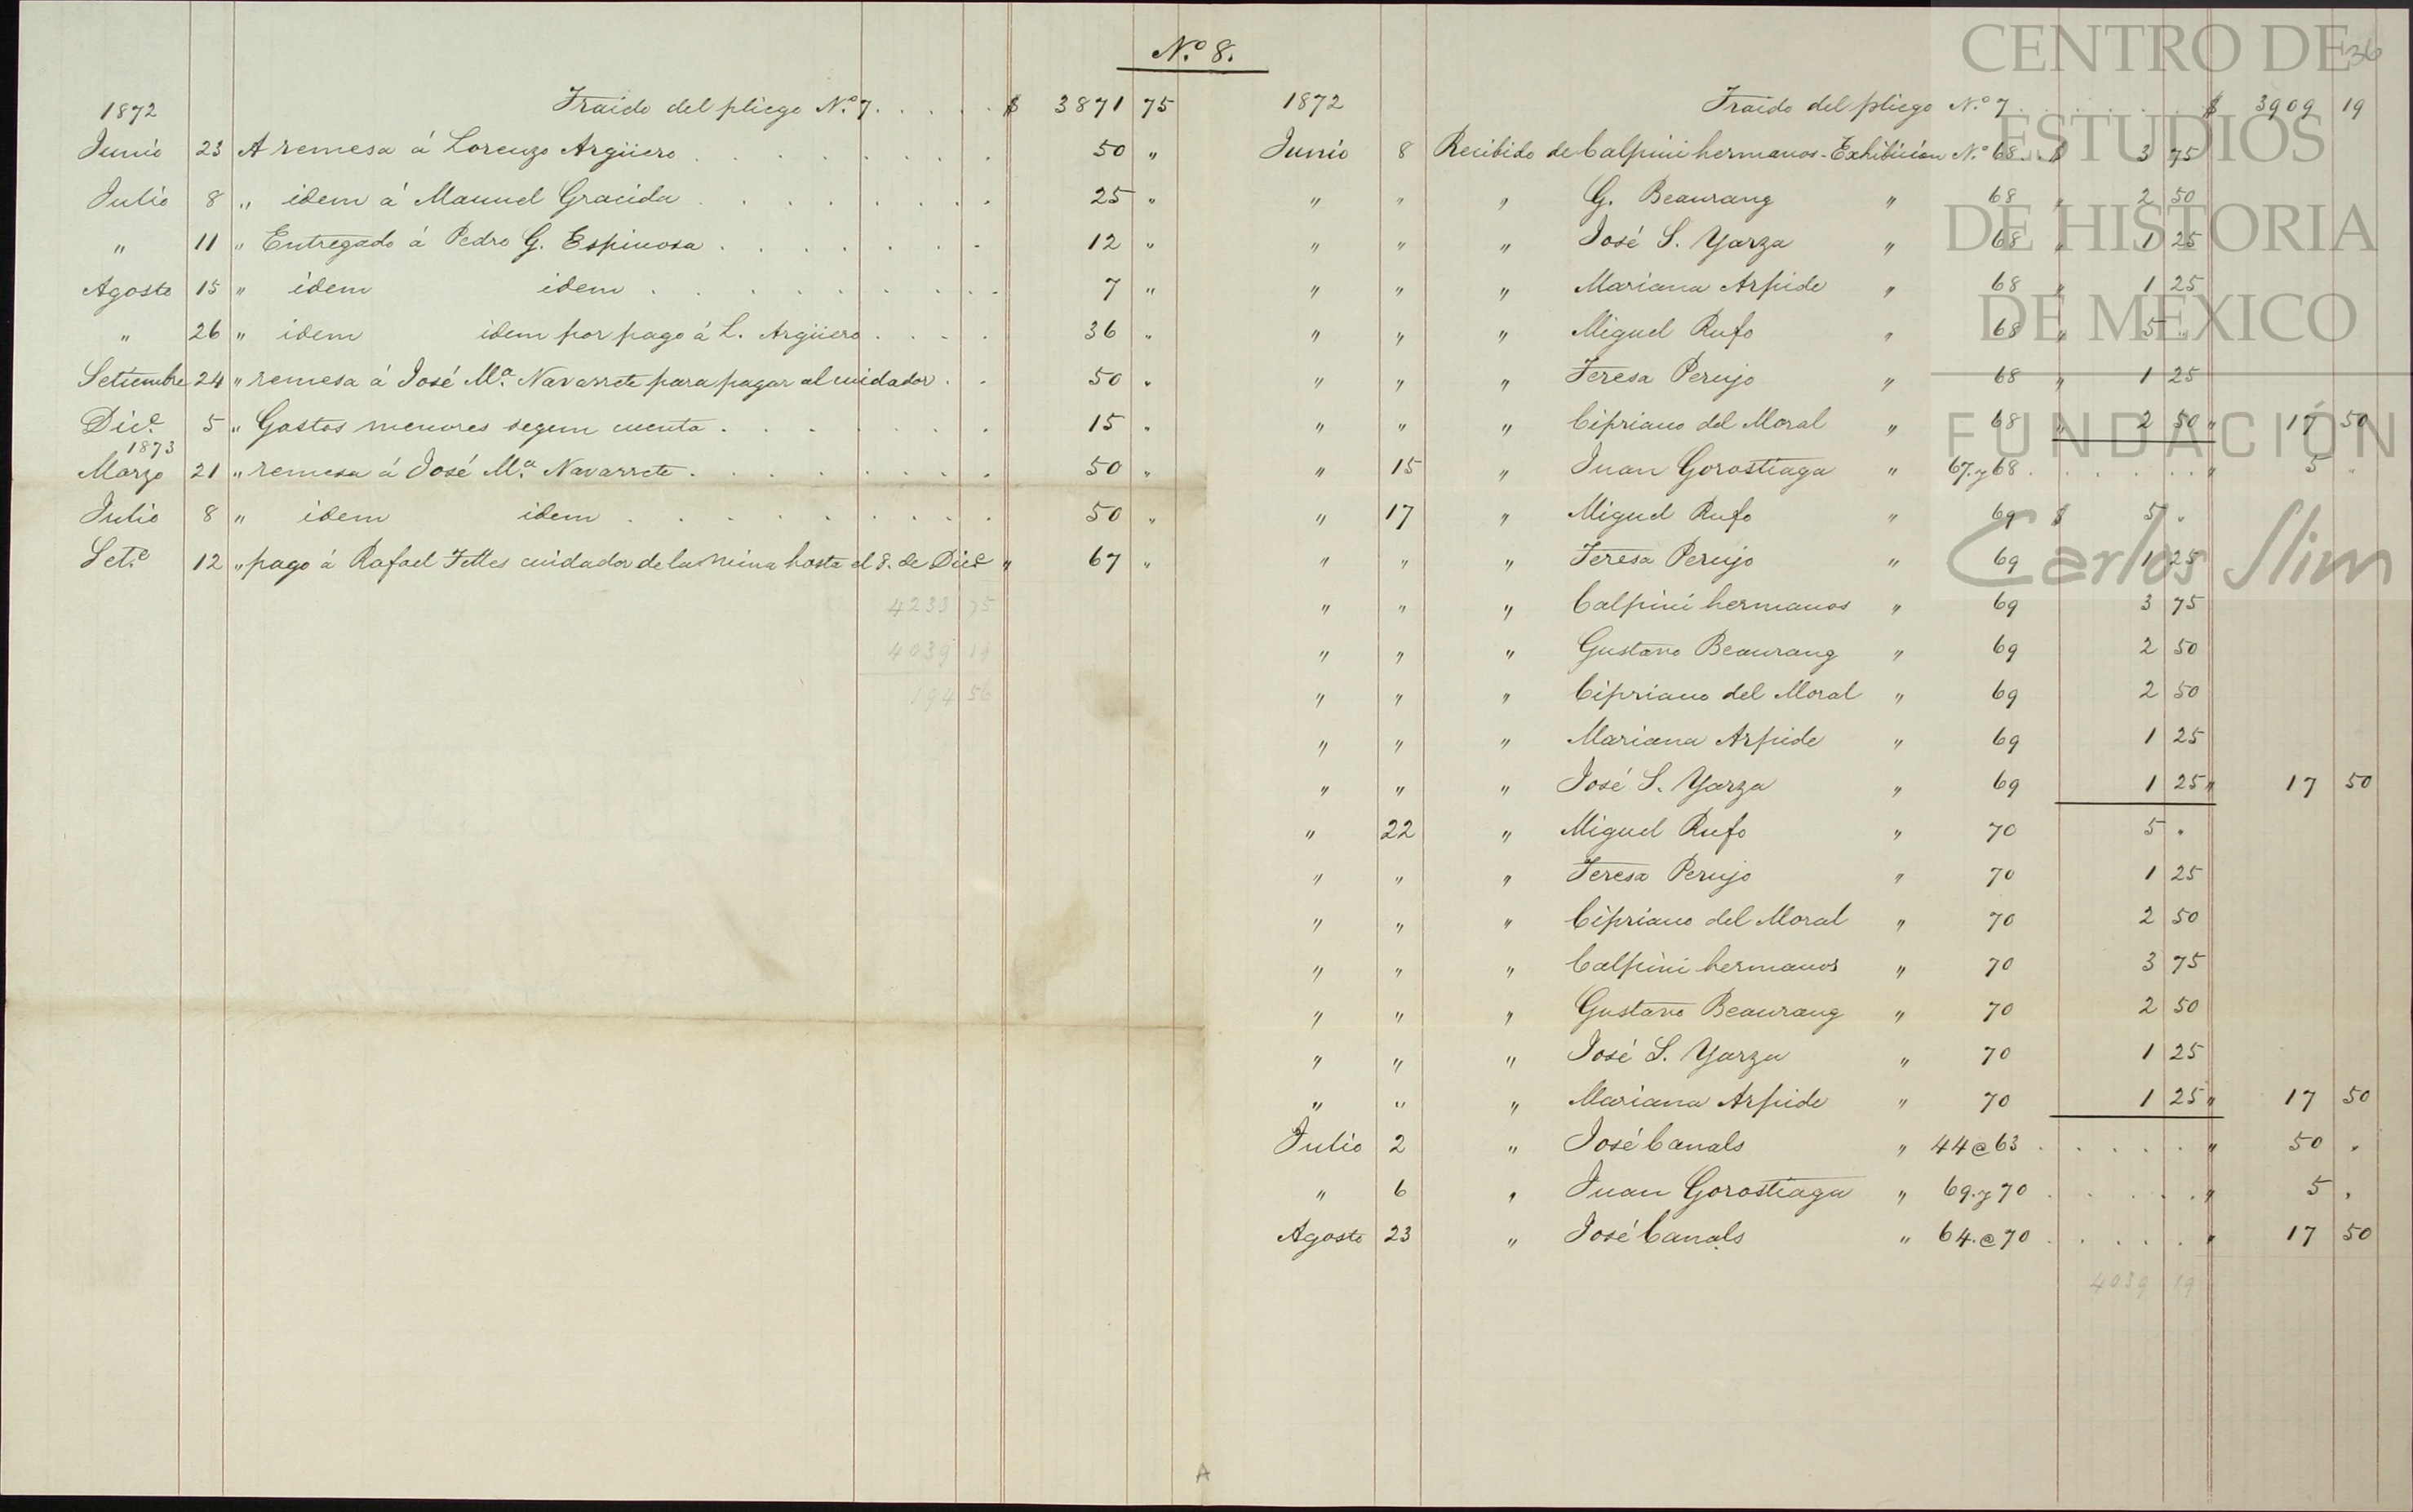 N.º 8.
36
1872 Traido del pliego N.º 7 . . . . . $ 3871 75
Junio 23 A remesa á Lorenzo Argüero . . . . . . . . 50 "
Julio 8 " idem á Manuel Gracida . . . . . . . . 25 "
" 11 " Entregado á Pedro G. Espinosa . . . . . . . 12 "
Agosto 15 " idem idem . . . . . . . . . 7 "
" 26 " idem idem por pago á L. Argüero . . . . 36 "
Setiembre 24 " remesa á José M.ª Navarrete para pagar al cuidador . . 50 "
Dic.e 5 " Gastos menores segun cuenta . . . . . . . 15 "
1873
Marzo 21 " remesa á José M.ª Navarrete . . . . . . . . 50 "
Julio 8 " idem idem . . . . . . . . . 50 "
Set.e 12 " pago á Rafael cuidador de la mina hasta el 8. de Dic.e " 67 "
4233 75
4039 19
194 56
1872 Traido del pliego N.º 7 . . . . . . . . $ 3909 19
Junio 8 Recibido de Calpini hermanos - Exhibicion N.º 68 . . $ 3 75
" " " G. Beaurang " 68 " 2 50
" " " José S. Yarza " 68 " 1 25
" " " Mariana Arpide " 68 " 1 25
" " " Miguel Rufo " 68 " 5 "
" " " Teresa Perujo " 68 " 1 25
" " " Cipriano del Moral " 68 " 2 50 " 17 50
" 15 " Juan Gorostiaga " 67. y 68 . . . . . . " 5 "
" 17 " Miguel Rufo " 69 $ 5 "
" " " Teresa Perujo " 69 1 25
" " " Calpini hermanos " 69 3 75
" " " Gustavo Beaurang " 69 2 50
" " " Cipriano del Moral " 69 2 50
" " " Mariana Arpide " 69 1 25
" " " José S. Yarza " 69 1 25 " 17 50
" 22 " Miguel Rufo " 70 5 "
" " " Teresa Perujo " 70 1 25
" " " Cipriano del Moral " 70 2 50
" " " Calpini hermanos " 70 3 75
" " " Gustavo Beaurang " 70 2 50
" " " José S. Yarza " 70 1 25
" " " Mariana Arpide " 70 1 25 " 17 50
Julio 2 " José Canals " 44 @ 63 . . . . . " 50 "
" 6 " Juan Gorostiaga " 69. y 70 . . . . . " 5 "
Agosto 23 " José Canals " 64. @ 70 . . . . . " 17 50
4039 19
A
CENTRO DE
ESTUDIOS
DE HISTORIA
DE MÉXICO
FUNDACIÓN
Carlos Slim